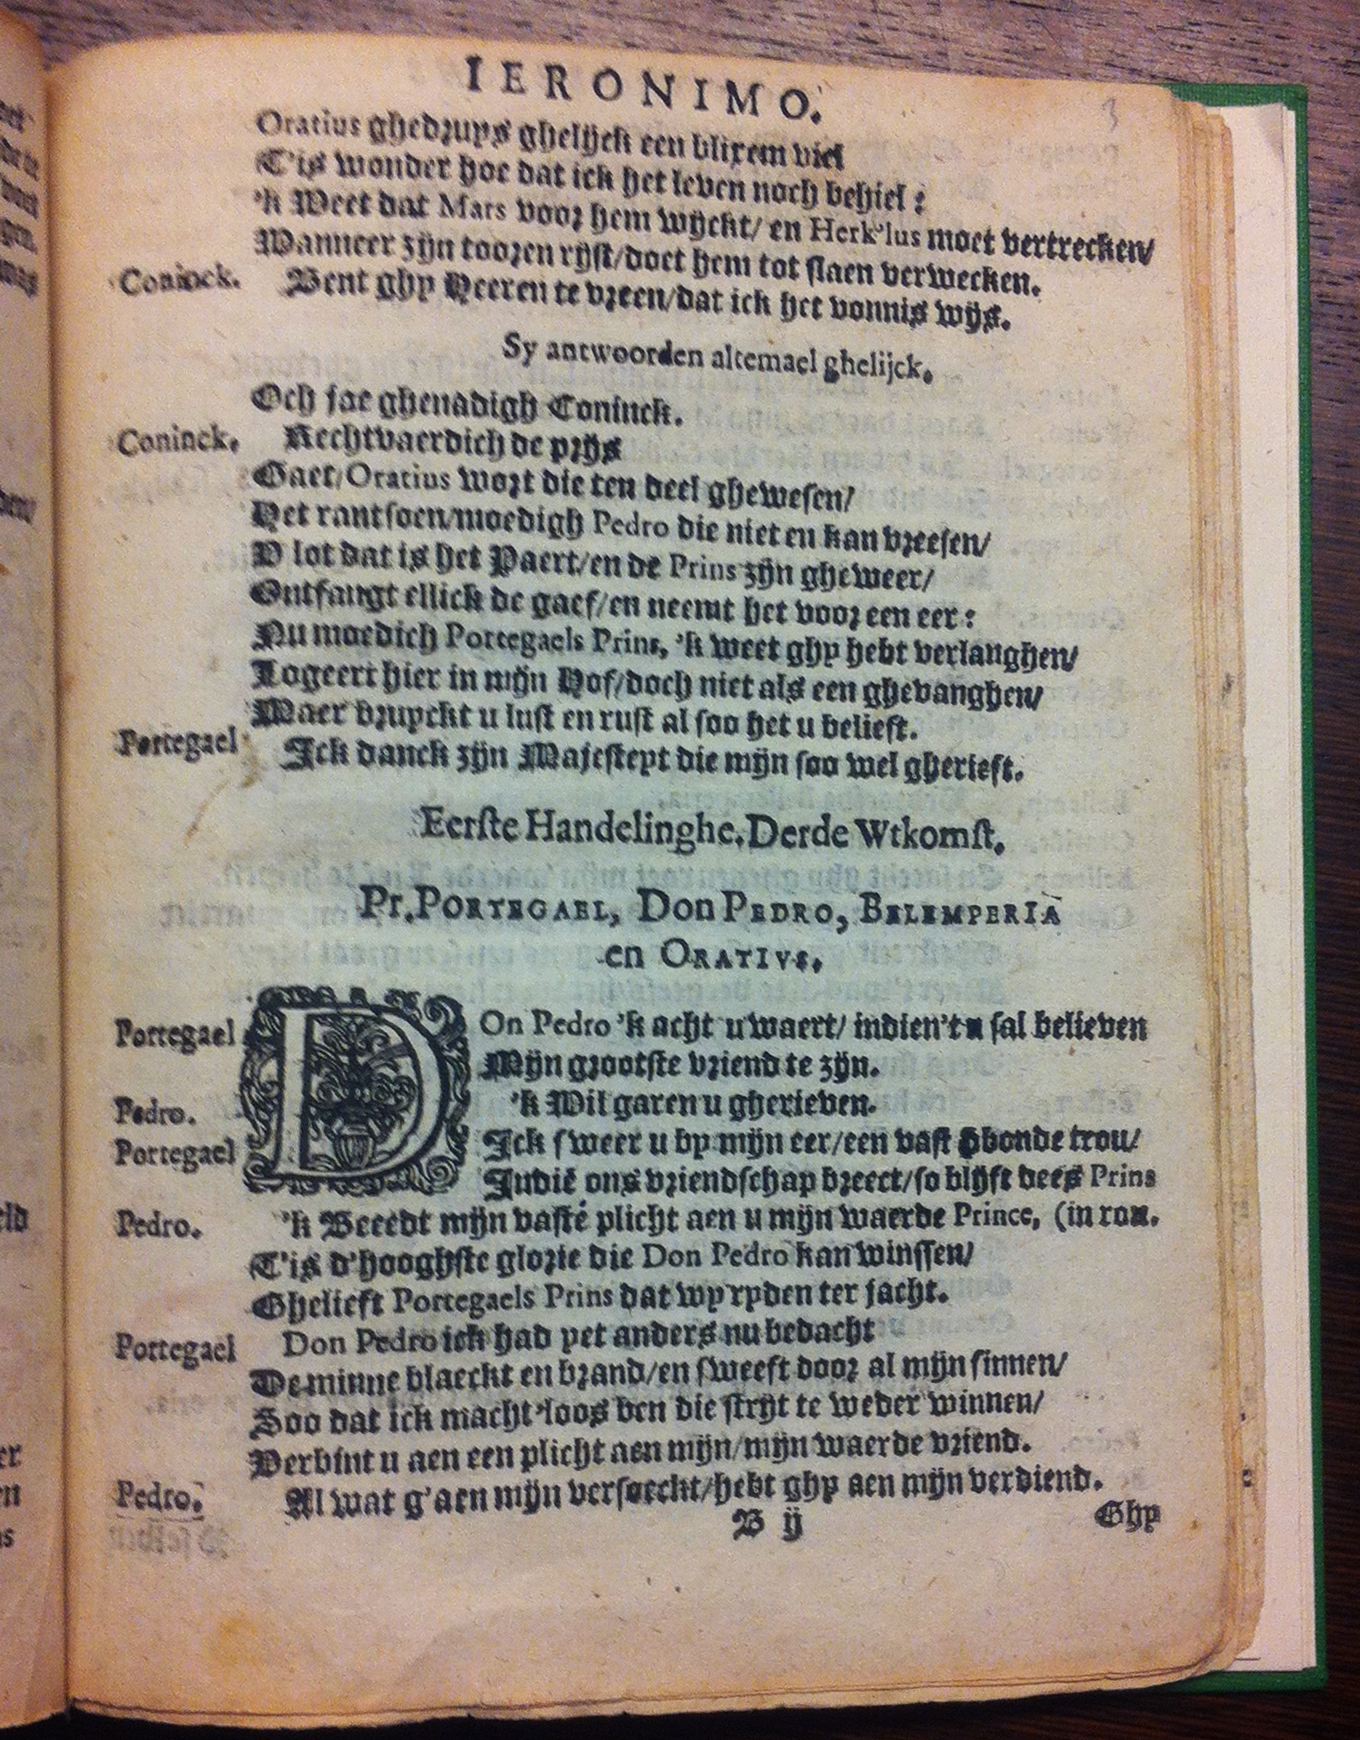 IERONIMO.
3
Oratius ghedruys ghelijck een blixem viel
T'is wonder hoe dat ick het leven noch behiel:
'k Weet dat Mars voor hem wijckt/ en Herk'lus moet vertrecken/
Wanneer zijn tooren rijst/doet hem tot slaen verwecken.
Coninck. Bent ghy Heeren te vreen/dat ick het vonnis wijs.
Sy antwoorden altemael ghelijck.
Och jae ghenadigh Coninck.
Coninck. Rechtvaerdich de prijs
Gaet/Oratius wort die ten deel ghewesen/
Het rantsoen/moedigh Pedro die niet en kan vreesen/
V lot dat is het Paert/en de Prins zijn gheweer/
Ontfangt ellick de gaef/en neemt het voor een eer:
Nu moedich Portegaels Prins, 'k weet ghy hebt verlanghen/
Logeert hier in mijn Hof/doch niet als een ghevanghen/
Maer bruyckt u lust en rust al soo het u belieft.
Portegael Ick danck zijn Majesteyt die mijn soo wel gherieft.
Eerste Handelinghe. Derde Wtkomst.
Pr. PORTEGAEL, Don PEDRO, BELEMPERIA
en ORATIVS.
Portegael DOn Pedro 'k acht u waert/ indien't u sal believen
Mijn grootste vriend te zijn.
Pedro. 'k Wil garen u gherieven.
Portegael Ick sweer u by mijn eer/een vast ghonde trou/
Indiē ons vriendschap breect/so blijft dees Prins
Pedro. 'k Beeedt mijn vasté plicht aen u mijn waerde Prince, (in rou.
T'is d'hooghste glorie die Don Pedro kan winssen/
Ghelieft Portegaels Prins dat wy ryden ter jacht.
Portegael Don Pedro ick had yet anders nu bedacht
De minne blaeckt en brand/en sweeft door al mijn sinnen/
Soo dat ick macht'loos ben die strijt te weder winnen/
Verbint u aen een plicht aen mijn/mijn waerde vriend.
Pedro. Al wat g'aen mijn versoeckt/hebt ghy aen mijn verdiend.
B ij Ghy